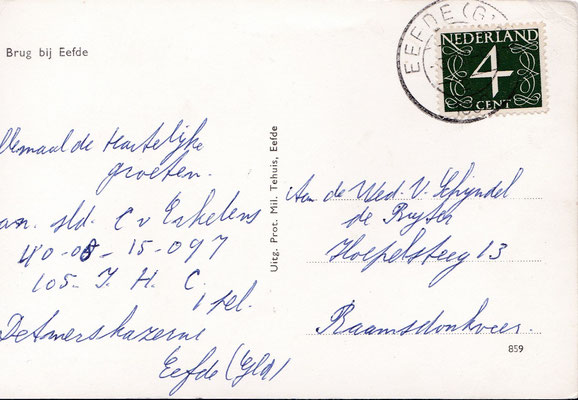 Brug bij Eefde
llemaal de Hartelijke
groeten.
an. sld. C v Erkelens
40-08-15-097
105- I. H. C.
1 pel.
Detmerskazerne
Eefde (Gld)
Uitg. Prot. Mil. Tehuis, Eefde
EEFDE (G)
NEDERLAND
4
CENT
Aan de Wed. V. Schijndel
de Ruyter
Hoepelsteeg 13
Raamsdonkveer.
859